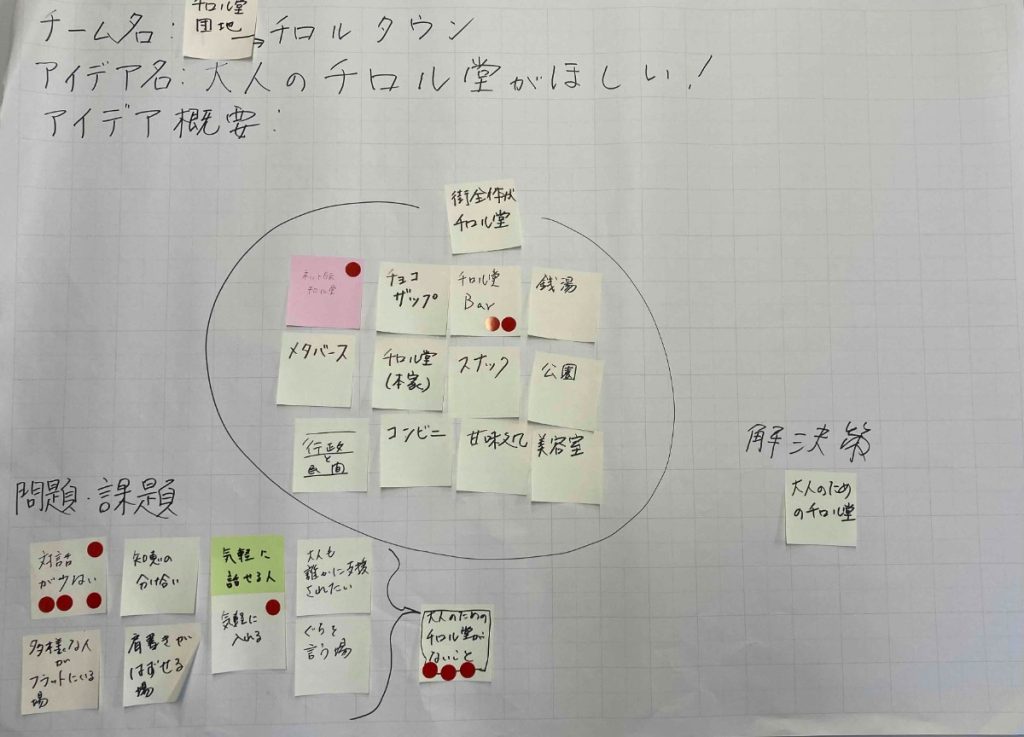 チーム名:
チロル堂
団地
→チロルタウン
アイデア名:大人のチロル堂がほしい!
アイデア概要:
街全体が
チロル堂
チロル堂
チョコ
ザップ
チロル堂
Bar
銭湯
メタバース
チロル堂
(本家)
スナック
公園
行政
と
民間
コンビニ
甘味処
美容室
解決策
大人のため
のチロル堂
問題・課題
対話
が少ない
知恵の
分け合い
気軽に
話せる人
大人も
誰かに支援
されたい
多様な人
が
フラットにいる
場
肩書きが
はずせる
場
気軽に
入れる
ぐちを
言う場
大人のための
チロル堂が
ないこと